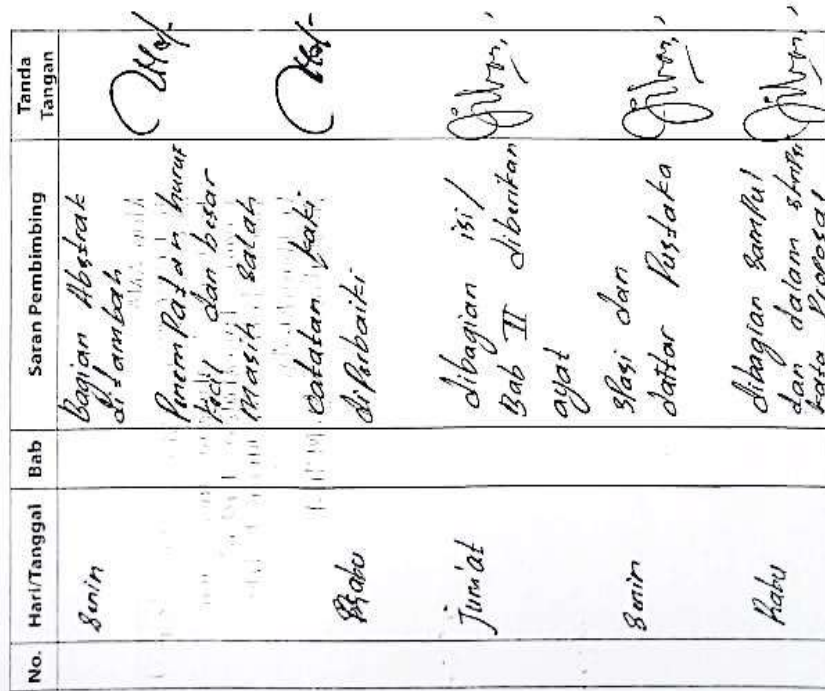 No. Hari/Tanggal Bab Saran Pembimbing Tanda Tangan
Senin
Bagian Abstrak
ditambah
Penempatan huruf
kecil dan besar
masih salah
Rabu
Catatan kaki
diperbaiki
Jum'at
dibagian isi/
Bab II diberikan
ayat
Senin
Spasi dan
daftar Pustaka
Rabu
dibagian sampul
dan dalam skripsi
kata Proposal